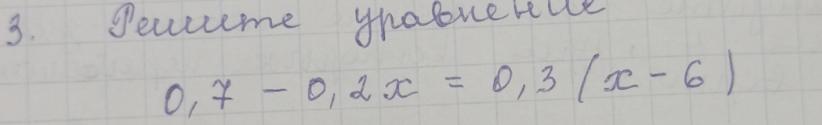 3. Решите уравнение
0,7 - 0,2x = 0,3(x - 6)